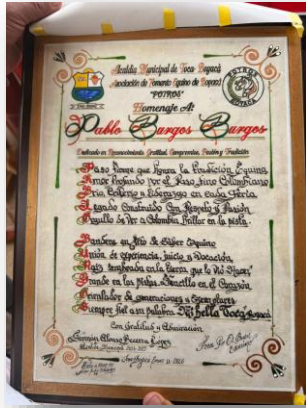 Alcaldía Municipal de Toca Boyacá
Asociación de Fomento Equino de Boyacá
"POTROS"
POTROS
BOYACÁ
Homenaje A:
Pablo Burgos Burgos
Dedicado en Reconocimiento Gratitud, Compromiso, Pasión y Tradición
Paso Firme que Honra la Tradición Equina
Amor Profundo por el Paso Fino Colombiano
Brío, Estilo y Liderazgo en cada Feria
Legado Construido Con Respeto y Pasión
Orgullo de Ver a Colombia Brillar en la pista.
Bandera en Alto de Sabor Equino
Unión de experiencia, juicio y Vocación
Raíz sembrada en la tierra que lo Vio
Grande en las Pistas, Sencillo en el Corazón
Orientador de Generaciones y Ejemplares
Siempre Fiel a su palabra. Mi Bella Toca, Boyacá
Con Gratitud y Admiración
Alonso Becerra